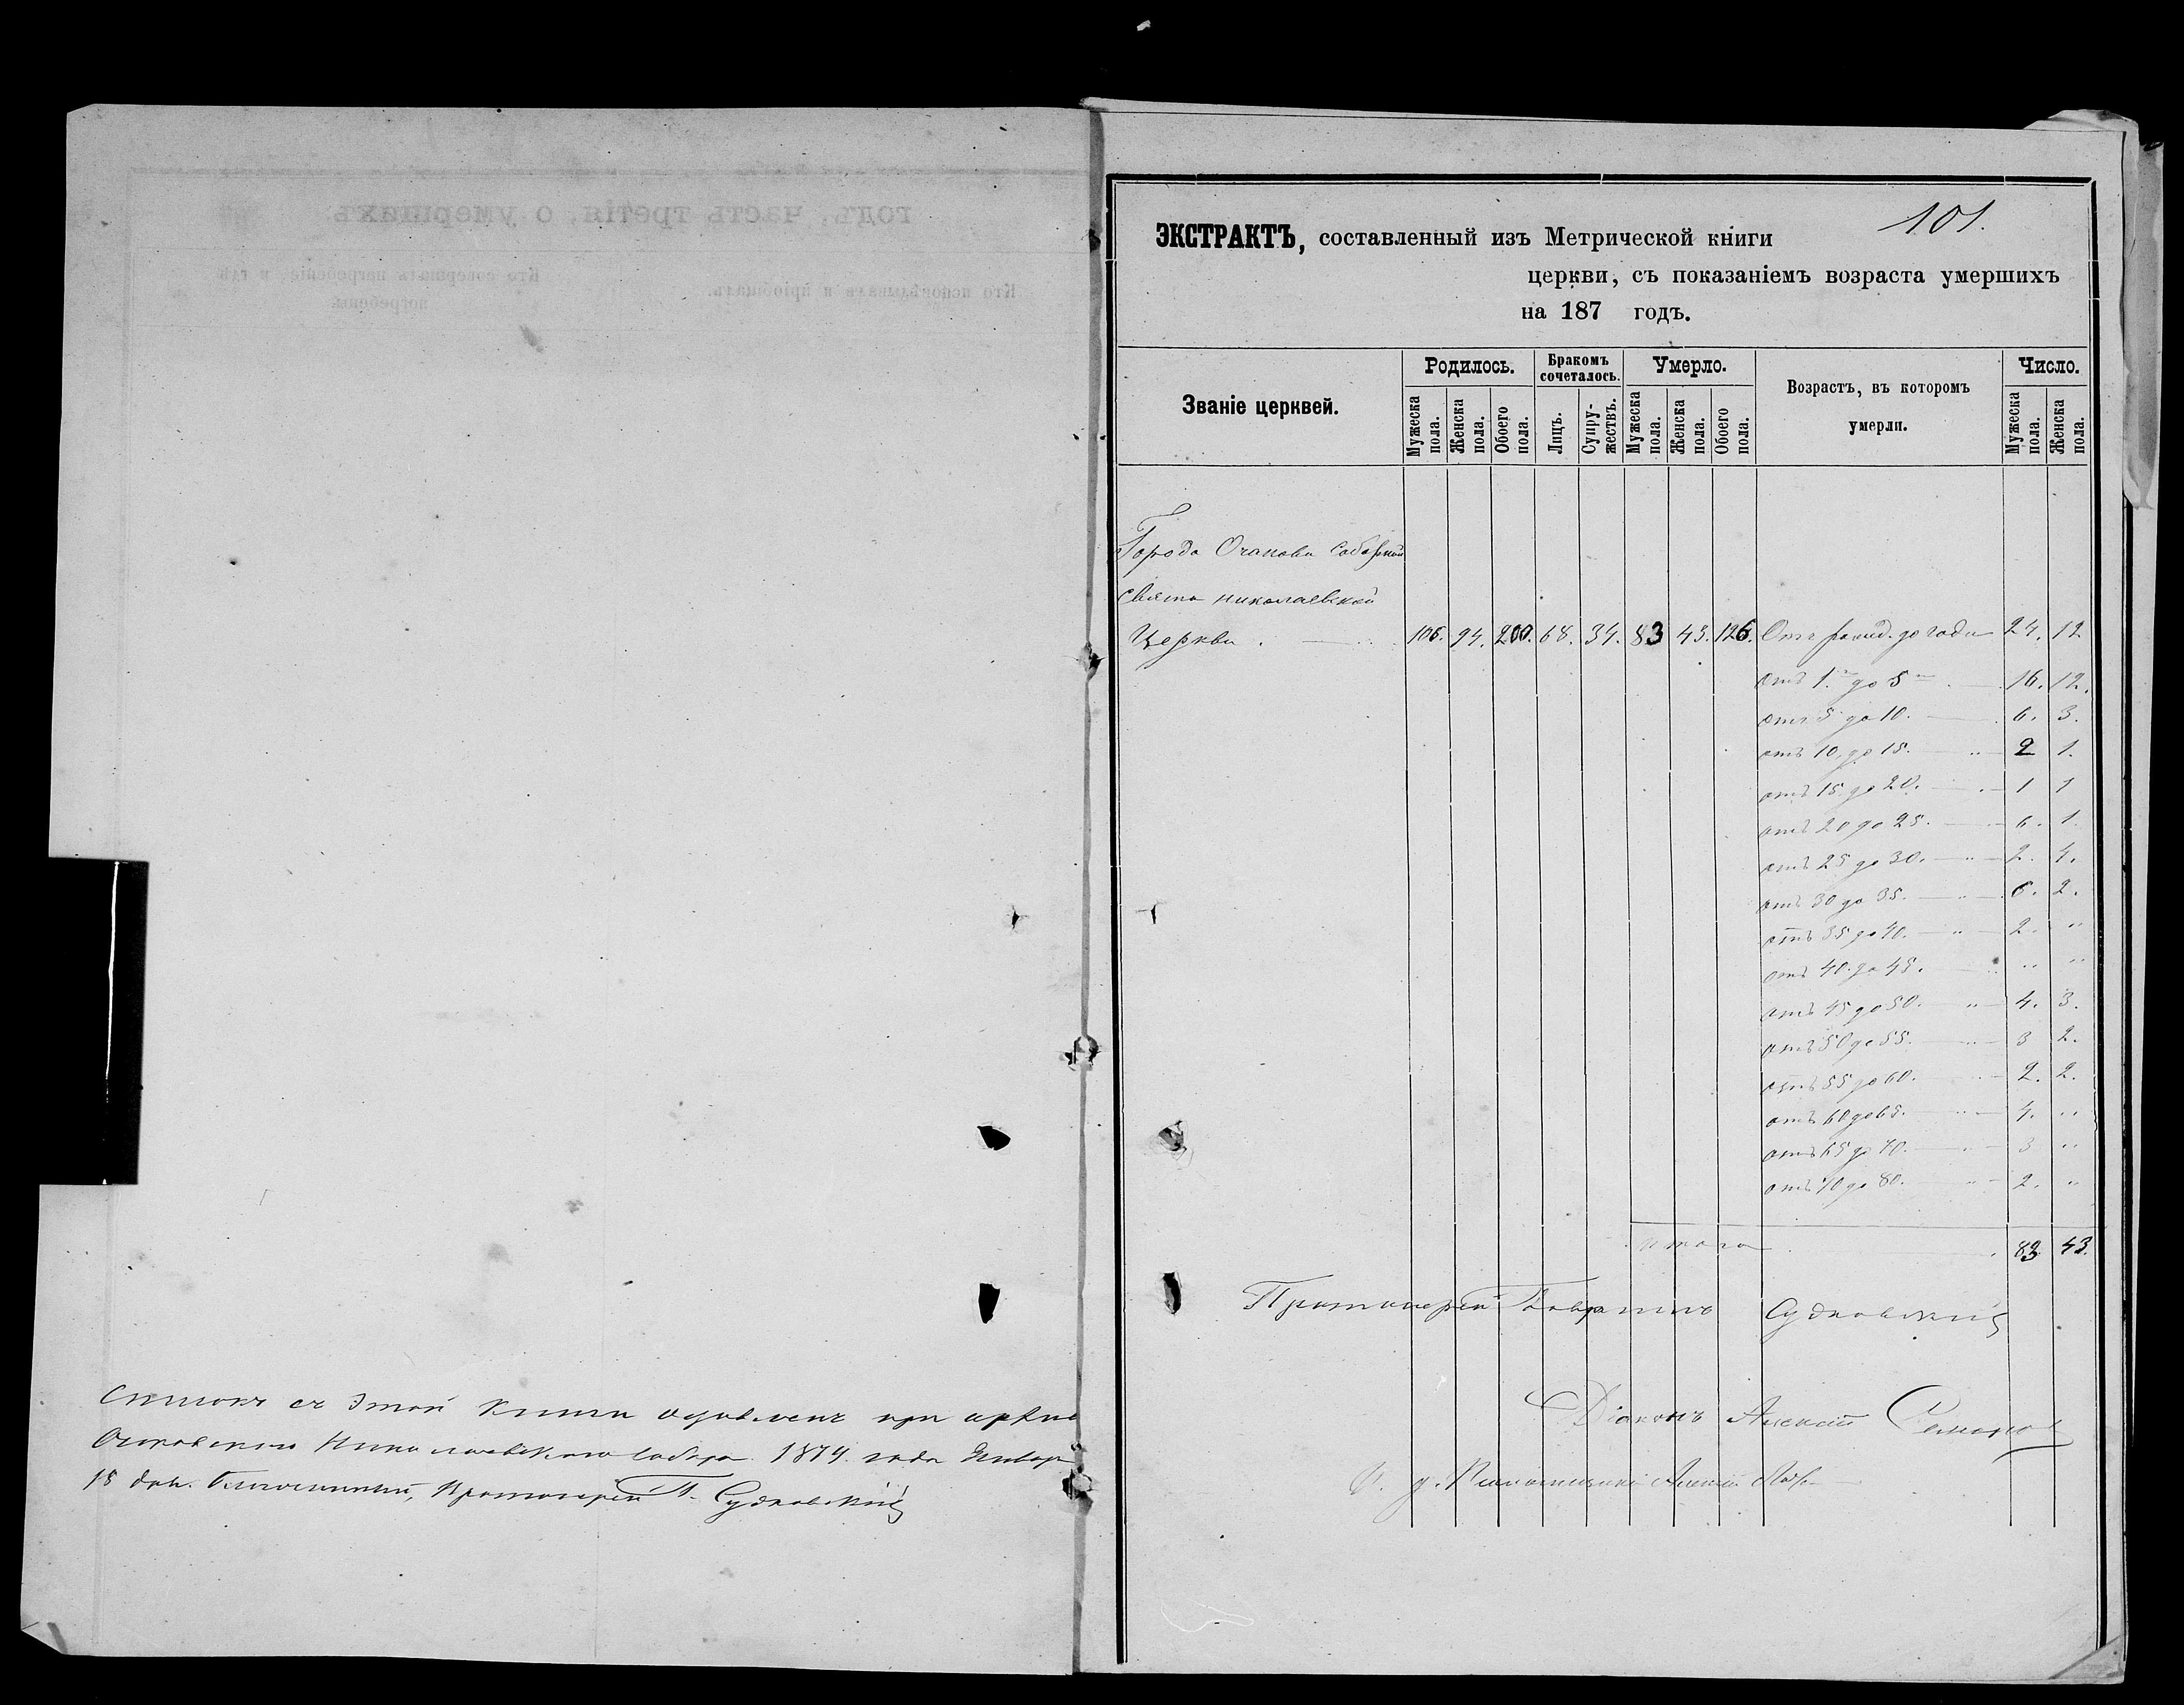 Списокъ съ этой книги оставленъ при архивѣ
Очаковскаго Николаевскаго собора 1874 года Январ
15 дня. Благочинный, Протоіерей Г. Судковскій
101.
ЭКСТРАКТЪ, составленный изъ Метрической книги
церкви, съ показаніемъ возраста умершихъ
на 187 годъ.
Званіе церквей. Родилось. Бракомъ сочеталось. Умерло. Возрастъ, въ которомъ умерли. Число.
Мужеска пола. Женска пола. Обоего пола. Лицъ. Супружествъ. Мужеска пола. Женска пола. Обоего пола. Мужеска пола. Женска пола.
Города Очакова Соборной
Свято Николаевской
Церкви. 106. 94. 200. 68. 34. 83 43. 126. Отъ рожд. до года 24. 12
отъ 1. до 5 16. 12.
отъ 5 до 10. 6. 3.
отъ 10. до 15. 2 1.
отъ 15. до 20. 1 1
отъ 20 до 25. 6. 1.
отъ 25 до 30. 2. 4.
отъ 30 до 35. 6. 2.
отъ 35 до 40. 2. "
отъ 40. до 45. " "
отъ 45 до 50. 4. 3.
отъ 50 до 55. 3 2.
отъ 55 до 60. 2. 2.
отъ 60 до 65. 4. "
отъ 65 до 70. 3 "
отъ 70 до 80. 2. "
итого 83. 43.
Протоіерей Гавріилъ Судковскій
Діаконъ Алексій
И. д. Псаломщика